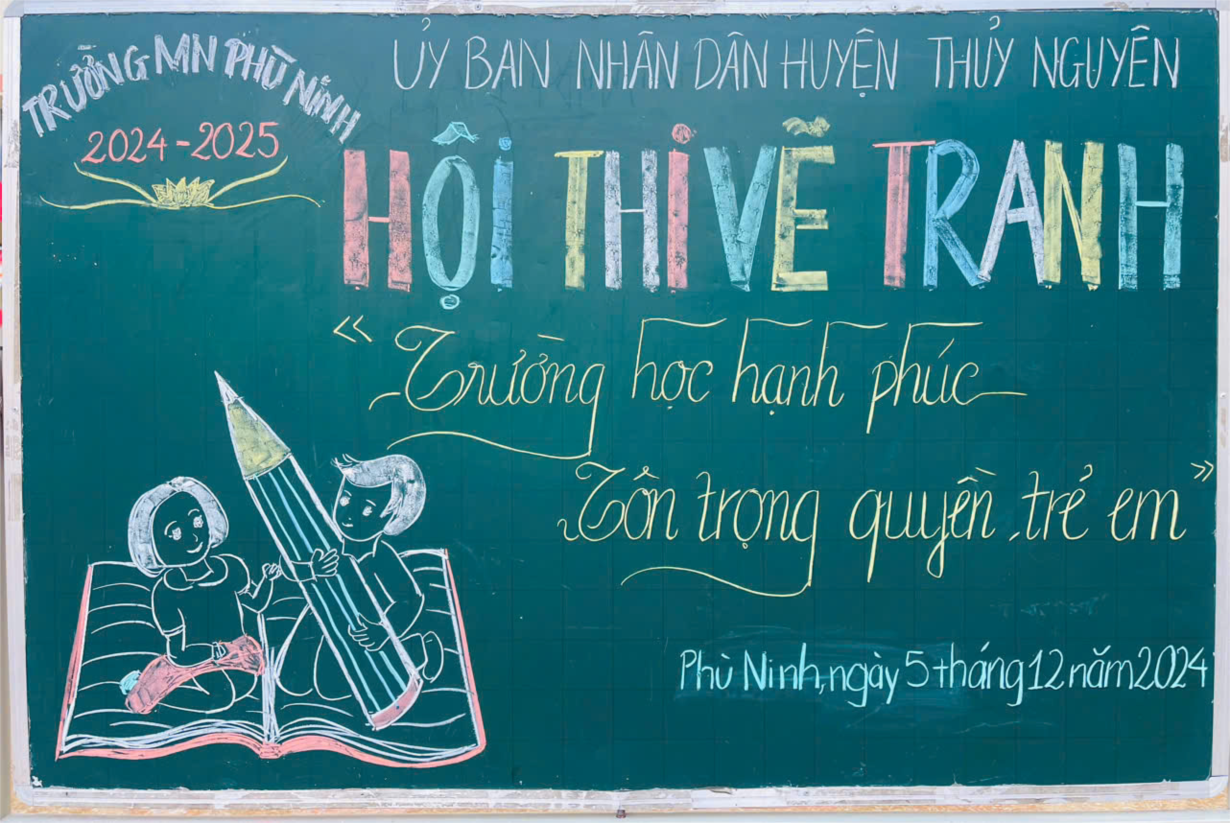 TRƯỜNG MN PHÙ NINH
2024-2025
ỦY BAN NHÂN DÂN HUYỆN THỦY NGUYÊN
HỘI THI VẼ TRANH
« Trường học hạnh phúc
Tôn trọng quyền trẻ em »
Phù Ninh, ngày 5 tháng 12 năm 2024